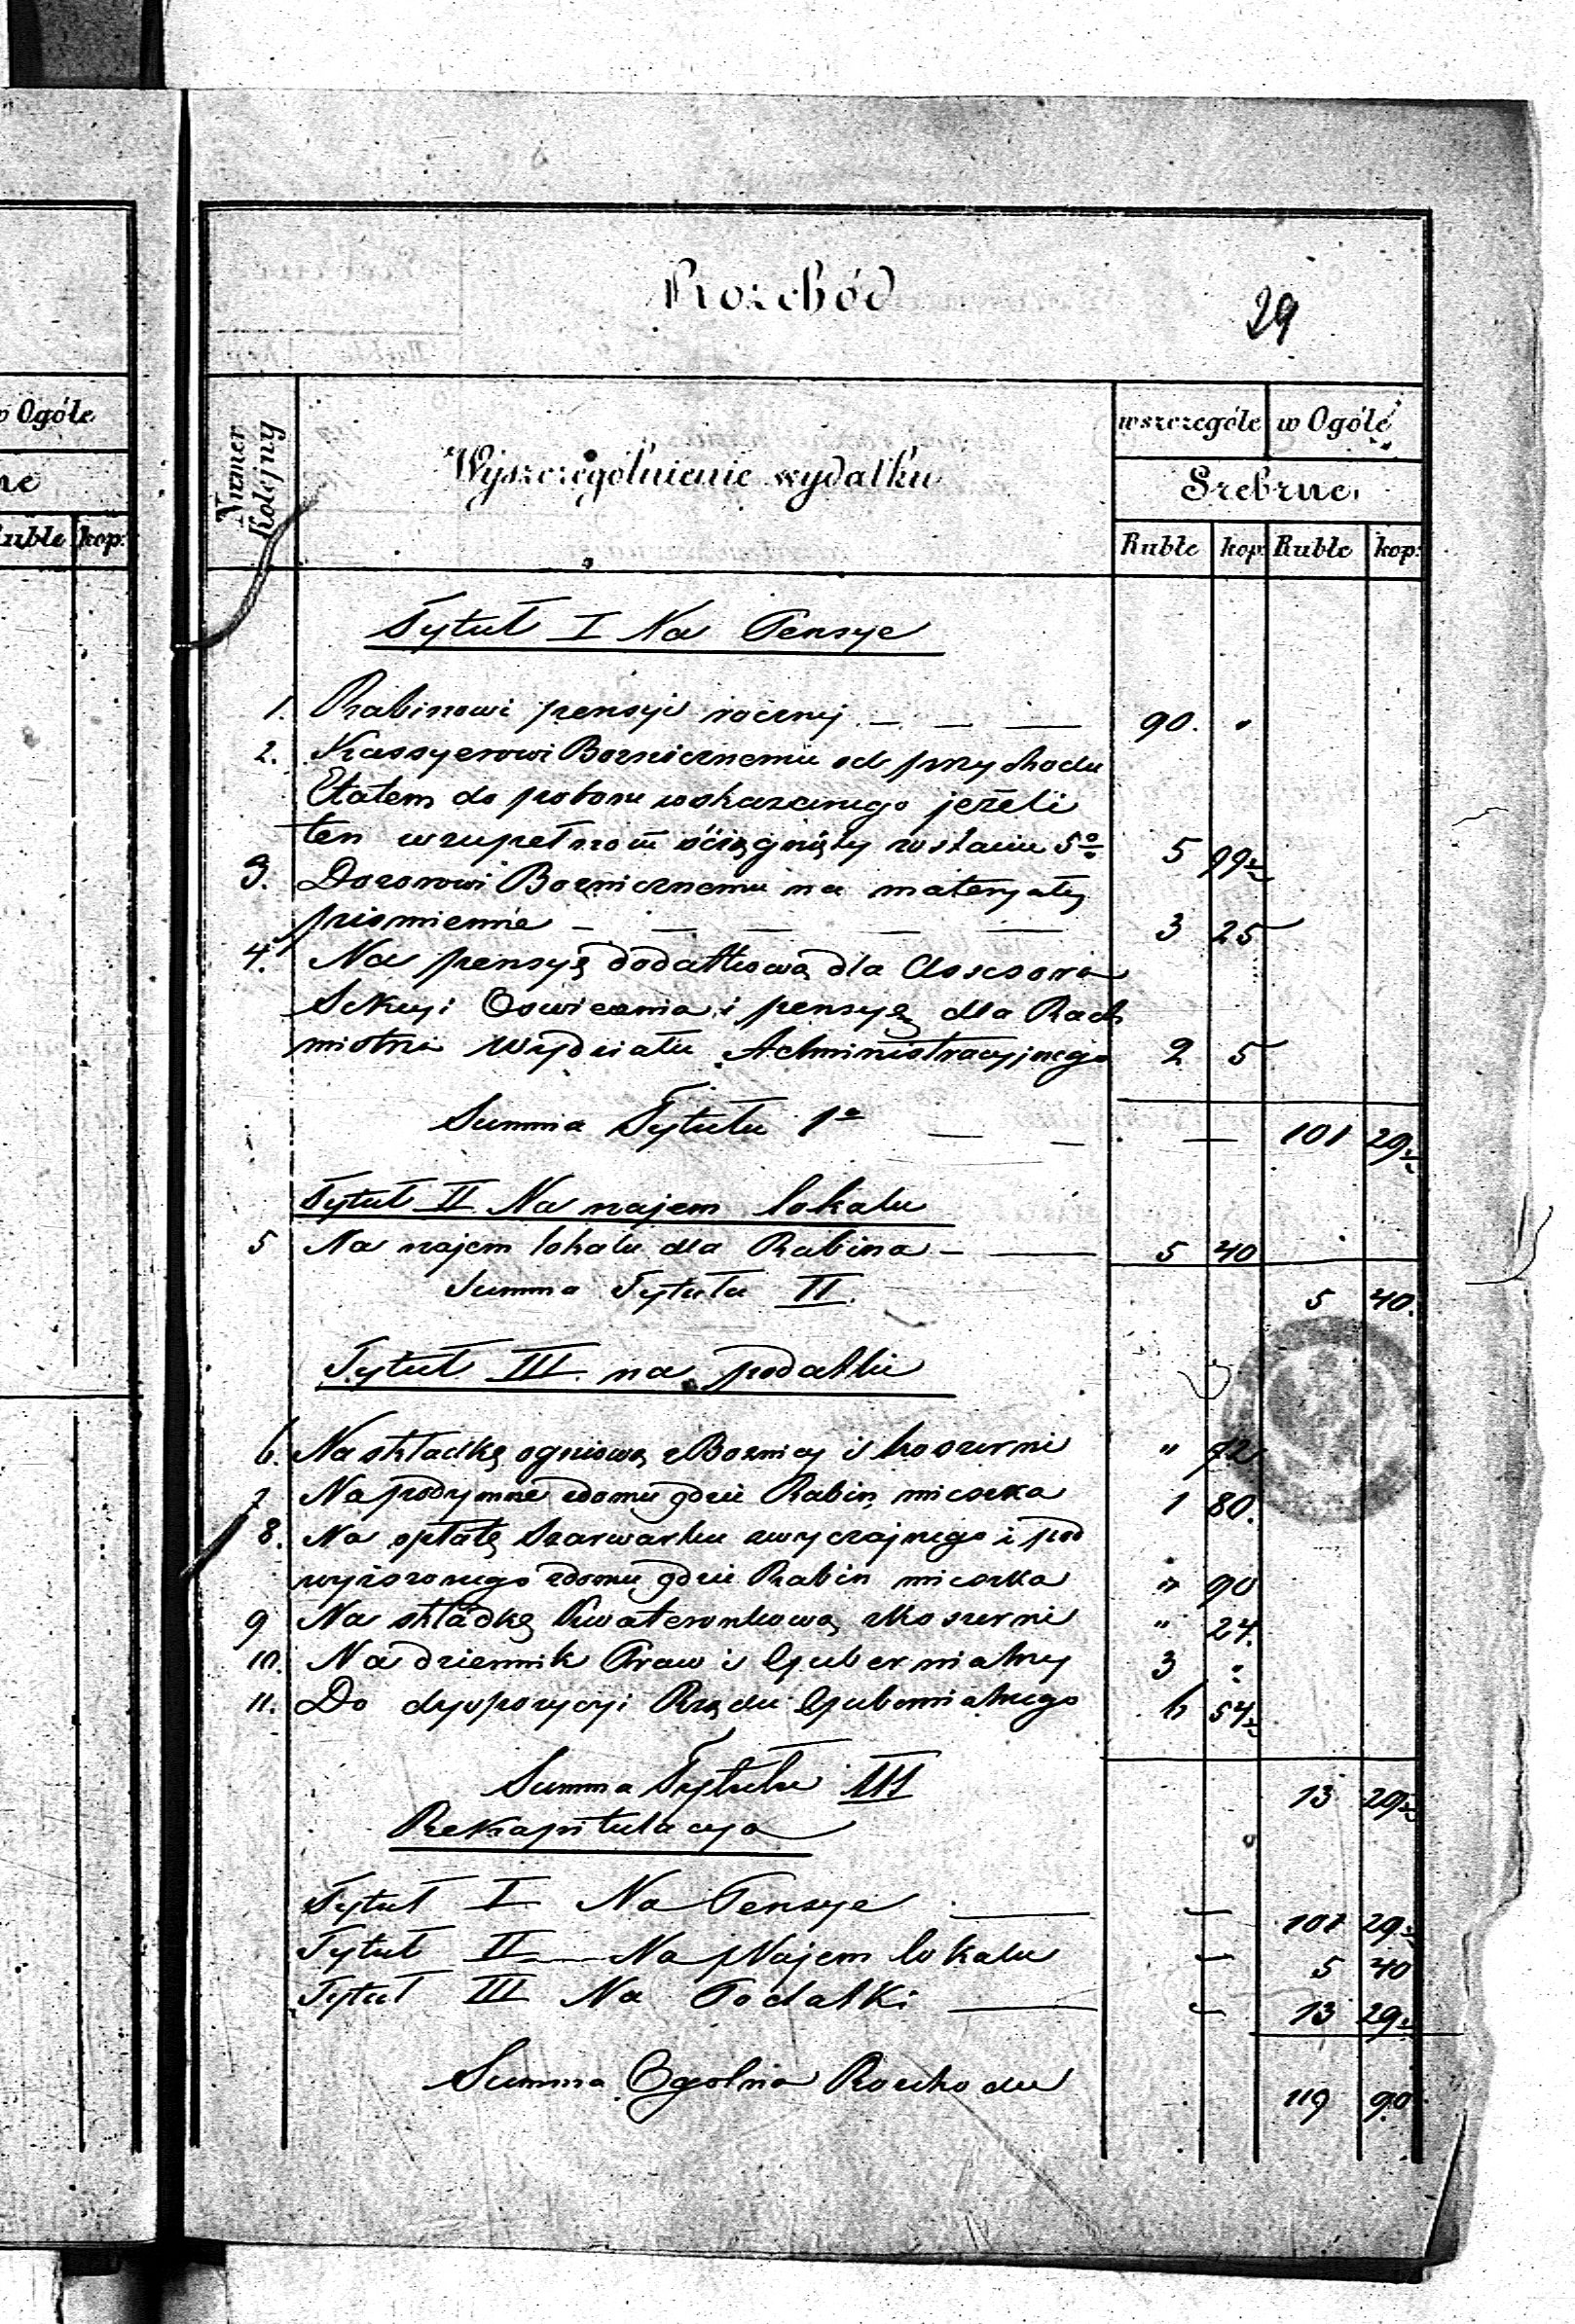 w Ogóle
ne
Ruble kop:
Rozchód
29
Numer Kolejny
Wyszczególnienie wydatku
wszczególe w Ogóle
Srebrne
Ruble kop: Ruble kop:
Tytuł I Na Pensye
1. Rabinowi pensyi rocznej — — — 90. "
2. Kassyerowi Boznicznemu od przychodu
Etatem do poboru wskazanego jeżeli
ten wzupełności ściągnięty zostanie 5% 5 99½
3. Dozorowi Boznicznemu na materyały
piśmienne — — — — — 3 25
4. Na pensyę dodatkową dla Assesora
Sekcyi Oswiecenia i pensyę dla Rach
mistrza Wydziału Administracyjnego 2 5
Summa Tytułu 1o — — — 101 29½
Tytuł II Na najem lokalu
5 Na najem lokalu dla Rabina — — 5 40
Summa Tytułu II. 5 40.
Tytuł III na podatki
6. Na składkę ogniową z Boznicy i koszerni " 72
7 Na podymne z domu gdzie Rabin mieszka 1 80.
8. Na opłatę Szarwarku zwyczajnego i pod
wyższonego z domu gdzie Rabin mieszka " 90
9 Na składkę Kwaterunkową z Koszerni " 24.
10. Na dziennik Praw i Gubernialny 3 "
11. Do dyspozycyi Rządu Gubernialnego 6 54½
Summa Tytułu III 13 29½
Rekapitulacya
Tytuł I Na Pensye — — 101 29½
Tytuł II — Na Najem lokalu — 5 40
Tytuł III Na Podatki — — 13 29½
Summa Ogolna Rozchodu 119 90